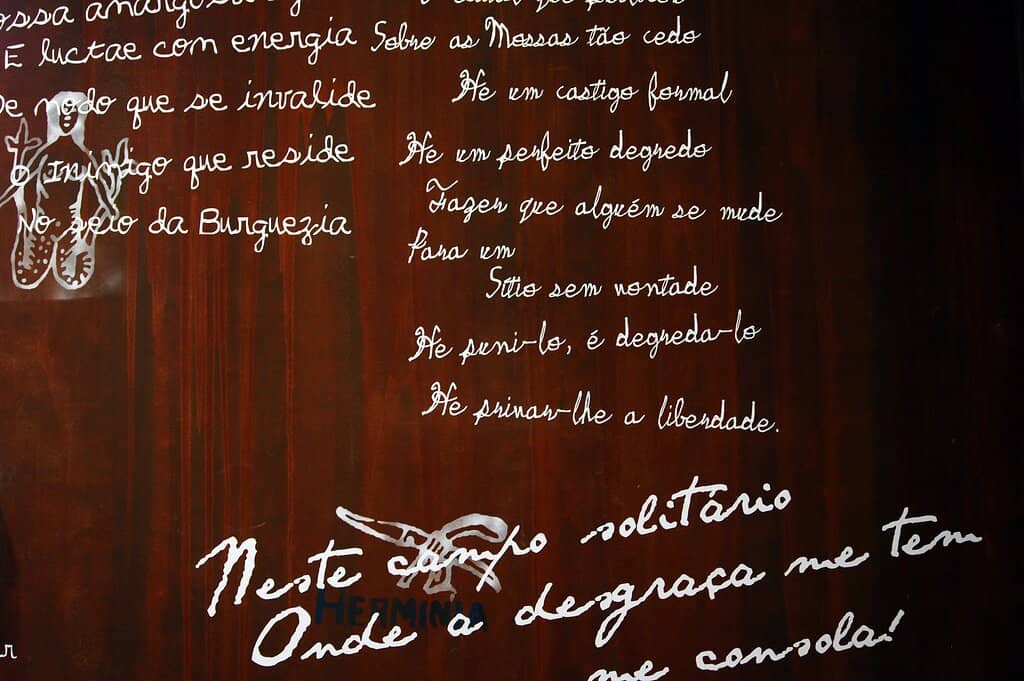 E luctae com energia
De modo que se invalide
O inimigo que reside
No seio da Burguezia
Sobre as Mossas tão cedo
He um castigo formal
He um perfeito degredo
Fazer que alguém se mude
Para um
Sitio sem vontade
He puni-lo, é degreda-lo
He privar-lhe a liberdade.
Neste campo solitário
Onde a desgraça me tem
me consola!
HERMINIA